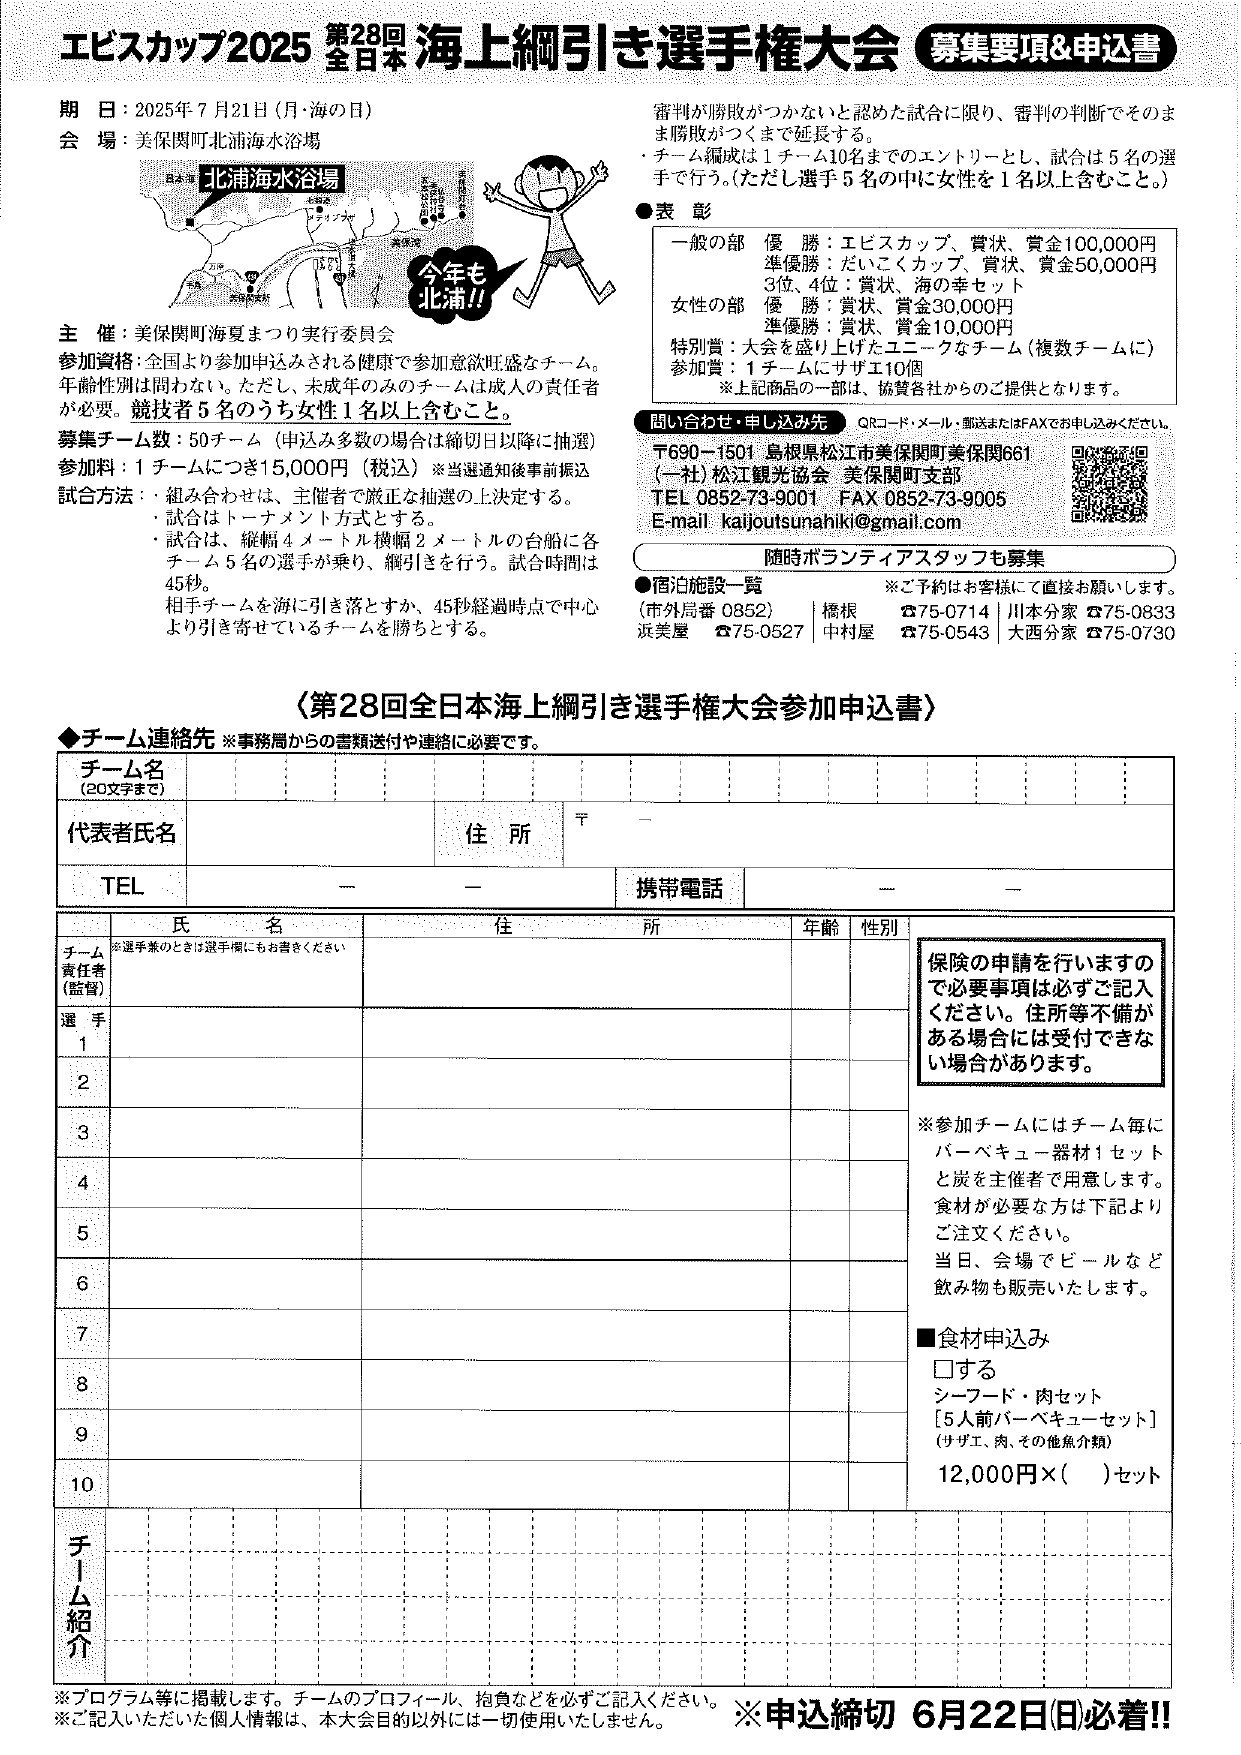 エビスカップ2025 第28回全日本 海上綱引き選手権大会 募集要項&申込書
期　日：2025年7月21日(月・海の日)
会　場：美保関町北浦海水浴場
日本海
北浦海水浴場
メテオプラザ
美保湾
美保関支所
今年も
北浦!!
主　催：美保関町海夏まつり実行委員会
参加資格：全国より参加申込みされる健康で参加意欲旺盛なチーム。
年齢性別は問わない。ただし、未成年のみのチームは成人の責任者
が必要。競技者5名のうち女性1名以上含むこと。
募集チーム数：50チーム（申込み多数の場合は締切日以降に抽選）
参加料：1チームにつき15,000円（税込）※当選通知後事前振込
試合方法：・組み合わせは、主催者で厳正な抽選の上決定する。
・試合はトーナメント方式とする。
・試合は、縦幅4メートル横幅2メートルの台船に各
チーム5名の選手が乗り、綱引きを行う。試合時間は
45秒。
相手チームを海に引き落とすか、45秒経過時点で中心
より引き寄せているチームを勝ちとする。
審判が勝敗がつかないと認めた試合に限り、審判の判断でそのま
ま勝敗がつくまで延長する。
・チーム編成は1チーム10名までのエントリーとし、試合は5名の選
手で行う。(ただし選手5名の中に女性を1名以上含むこと。)
●表　彰
一般の部　優　勝：エビスカップ、賞状、賞金100,000円
準優勝：だいこくカップ、賞状、賞金50,000円
3位、4位：賞状、海の幸セット
女性の部　優　勝：賞状、賞金30,000円
準優勝：賞状、賞金10,000円
特別賞：大会を盛り上げたユニークなチーム（複数チームに）
参加賞：1チームにサザエ10個
※上記商品の一部は、協賛各社からのご提供となります。
問い合わせ・申し込み先　QRコード・メール・郵送またはFAXでお申し込みください。
〒690－1501 島根県松江市美保関町美保関661
(一社)松江観光協会 美保関町支部
TEL 0852-73-9001　FAX 0852-73-9005
E-mail kaijoutsunahiki@gmail.com
随時ボランティアスタッフも募集
●宿泊施設一覧　※ご予約はお客様にて直接お願いします。
(市外局番 0852)　橋根　☎75-0714　川本分家 ☎75-0833
浜美屋　☎75-0527　中村屋　☎75-0543　大西分家 ☎75-0730
〈第28回全日本海上綱引き選手権大会参加申込書〉
◆チーム連絡先 ※事務局からの書類送付や連絡に必要です。
チーム名
(20文字まで)
代表者氏名　住　所　〒　－
TEL　－　－　携帯電話　－　－
氏　名　住　所　年齢　性別
チーム
責任者
(監督)
※選手兼のときは選手欄にもお書きください
選　手
1
2
3
4
5
6
7
8
9
10
保険の申請を行いますの
で必要事項は必ずご記入
ください。住所等不備が
ある場合には受付できな
い場合があります。
※参加チームにはチーム毎に
バーベキュー器材1セット
と炭を主催者で用意します。
食材が必要な方は下記より
ご注文ください。
当日、会場でビールなど
飲み物も販売いたします。
■食材申込み
□する
シーフード・肉セット
[5人前バーベキューセット]
(サザエ、肉、その他魚介類)
12,000円×(　)セット
チーム紹介
※プログラム等に掲載します。チームのプロフィール、抱負などを必ずご記入ください。
※ご記入いただいた個人情報は、本大会目的以外には一切使用いたしません。
※申込締切 6月22日(日)必着!!